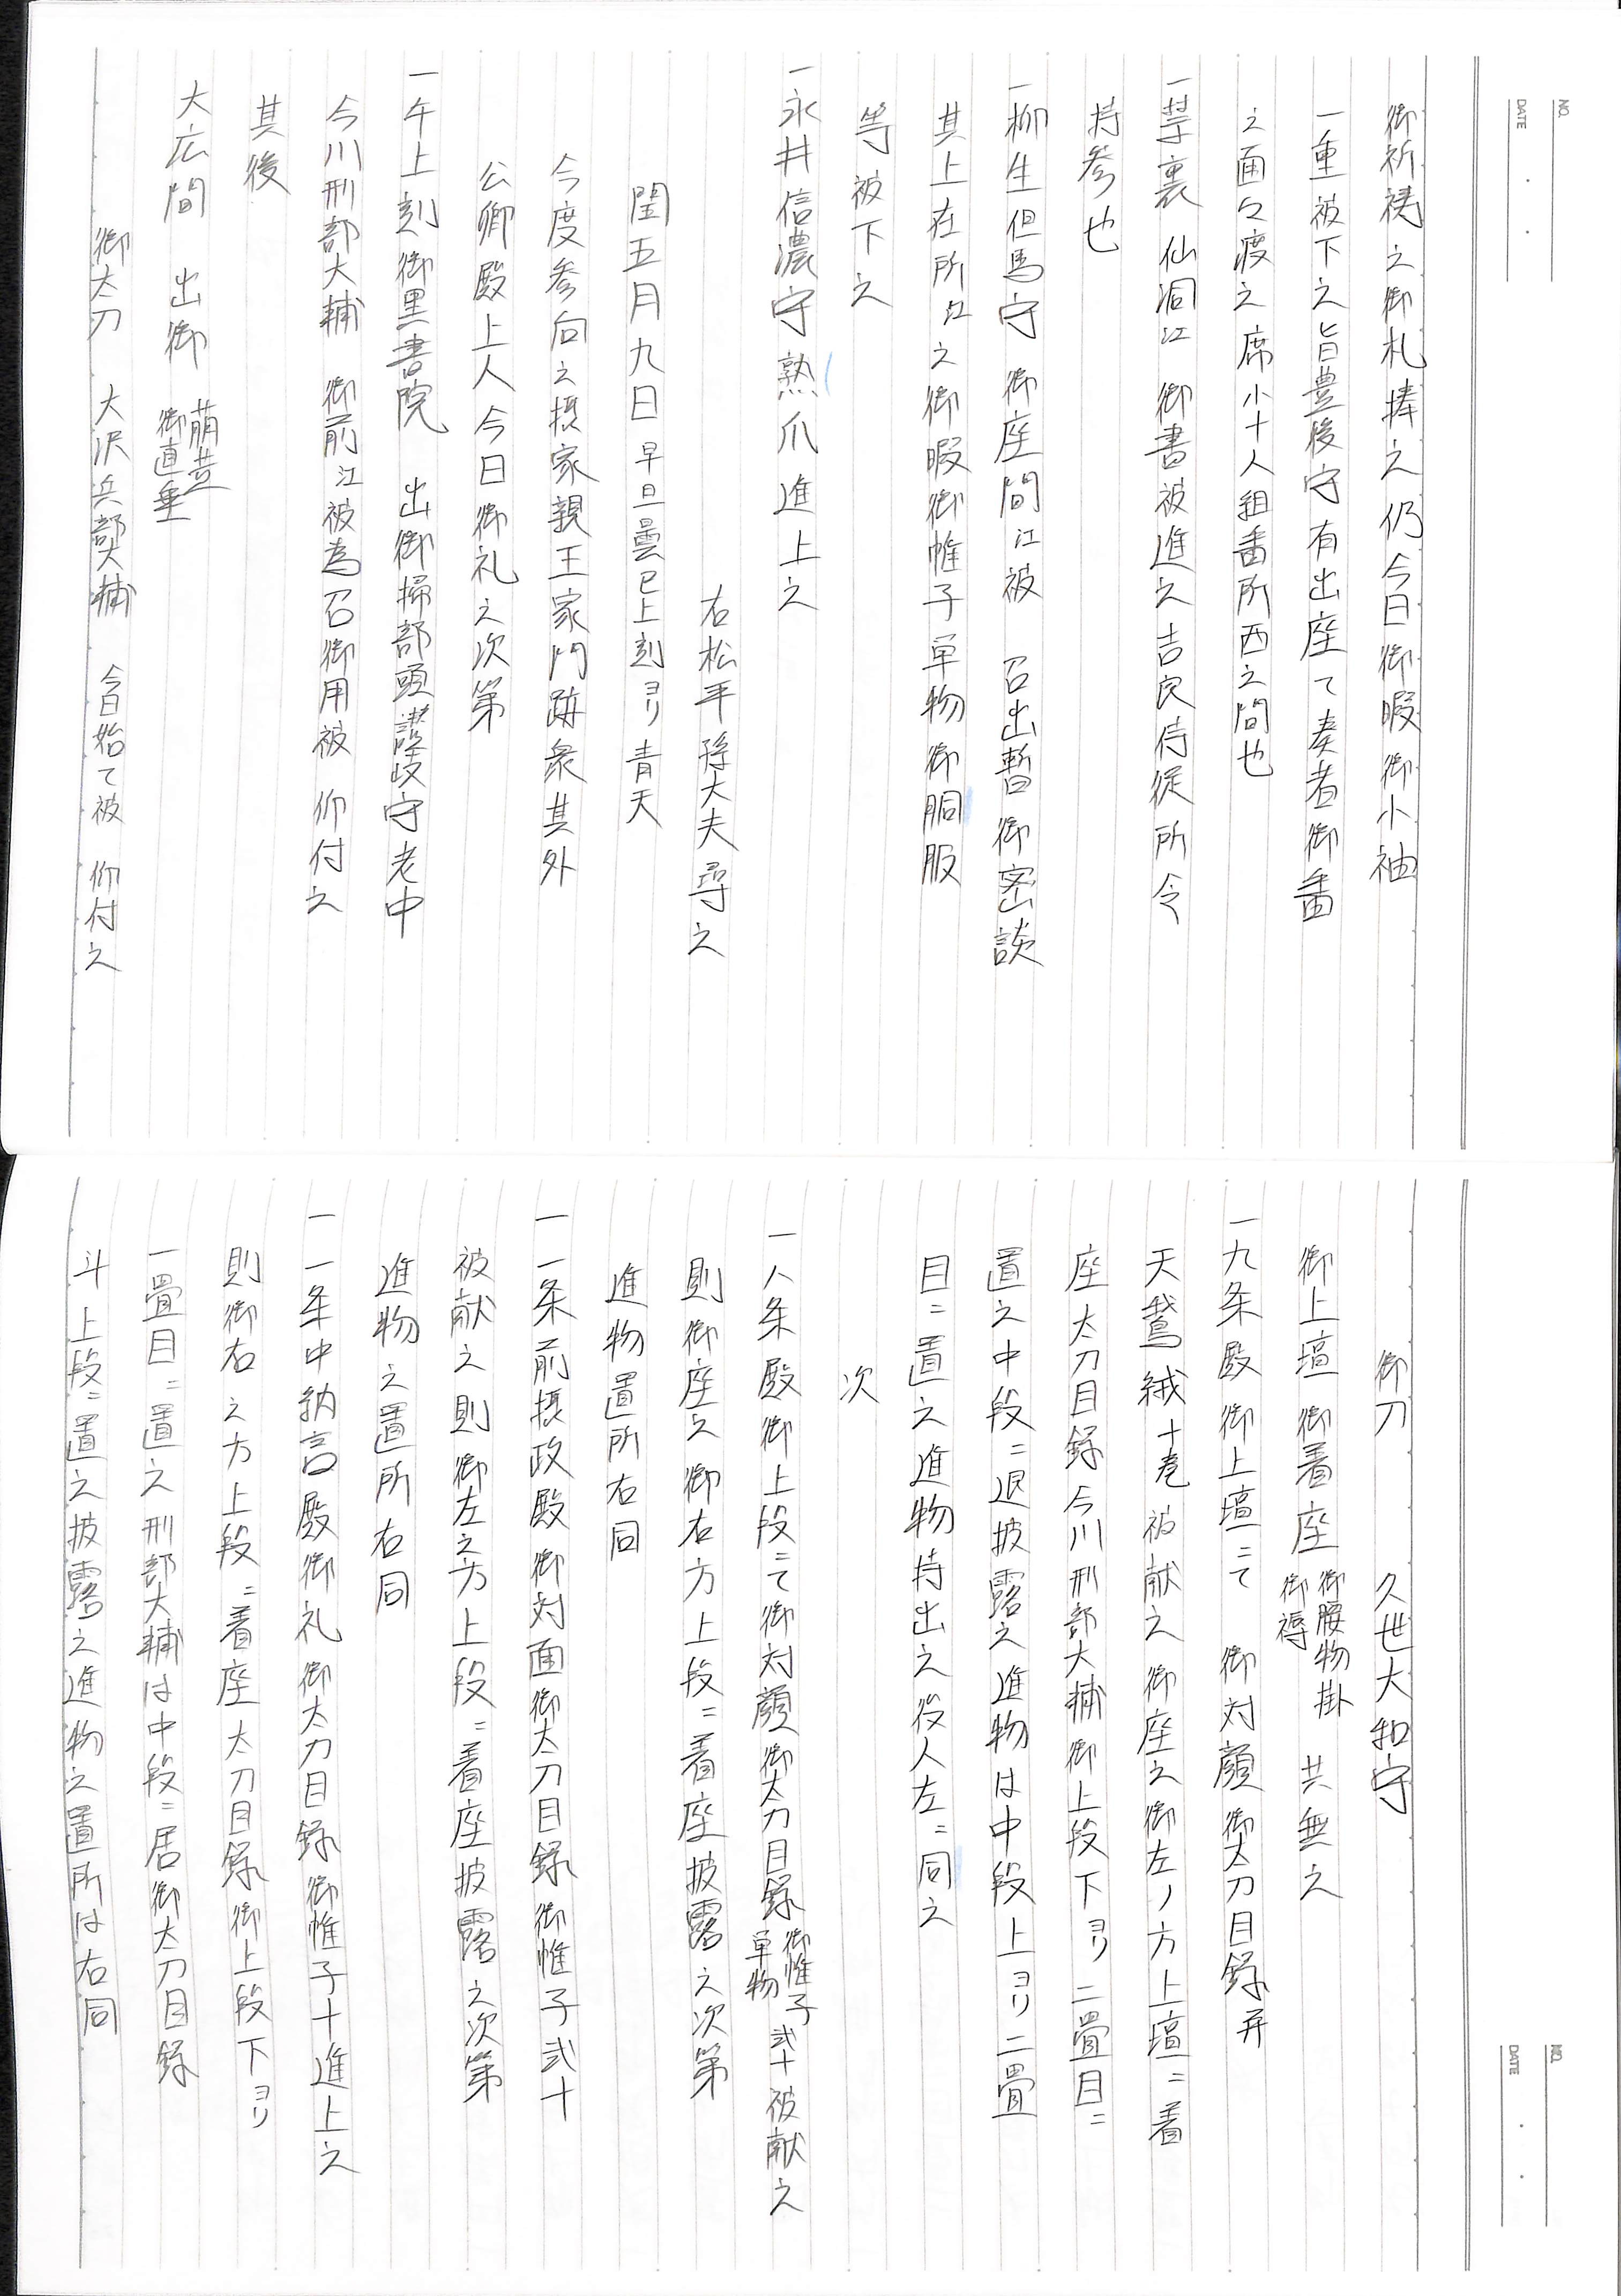 NO.
DATE
御祈祷之御札捧之仍今日御暇御小袖
一重被下之旨豊後守有出座て奏者御番
之面々渡之席小十人組番所西之間也
一禁裏 仙洞江 御書被進之吉良侍従所令
持参也
一柳生但馬守 御座間江被 召出暫御密談
其上在所江之御暇御帷子単物御胴服
等被下之
一永井信濃守熟爪進上之
右松平孫大夫尋之
閏五月九日 早旦曇巳上刻ヨリ青天
今度参向之摂家親王家門跡衆其外
公卿殿上人今日御礼之次第
一午上刻御黒書院 出御掃部頭讃岐守老中
今川刑部大輔 御前江被為召御用被 仰付之
其後
大広間 出御 萌黄 御直垂
御太刀 大沢兵部大輔 今日始て被 仰付之
NO.
DATE
御刀 久世大和守
御上壇 御着座 御腰物掛 御褥 共無之
一九条殿御上壇ニて 御対顔御太刀目録并
天鵞絨十巻被献之御座之御左ノ方上壇ニ着
座太刀目録今川刑部大輔御上段下ヨリ二畳目ニ
置之中段ニ退披露之進物は中段上ヨリ二畳
目ニ置之進物持出之役人左ニ同之
次
一八条殿御上段ニて御対顔御太刀目録 御帷子 単物 弐十被献之
則御座之御右方上段ニ着座披露之次第
進物置所右同
一一条前摂政殿御対面御太刀目録御帷子弐十
被献之則御左之方上段ニ着座披露之次第
進物之置所右同
一一条中納言殿御礼御太刀目録御帷子十進上之
則御右之方上段ニ着座太刀目録御上段下ヨリ
一畳目ニ置之刑部大輔は中段ニ居御太刀目録
斗上段ニ置之披露之進物之置所は右同